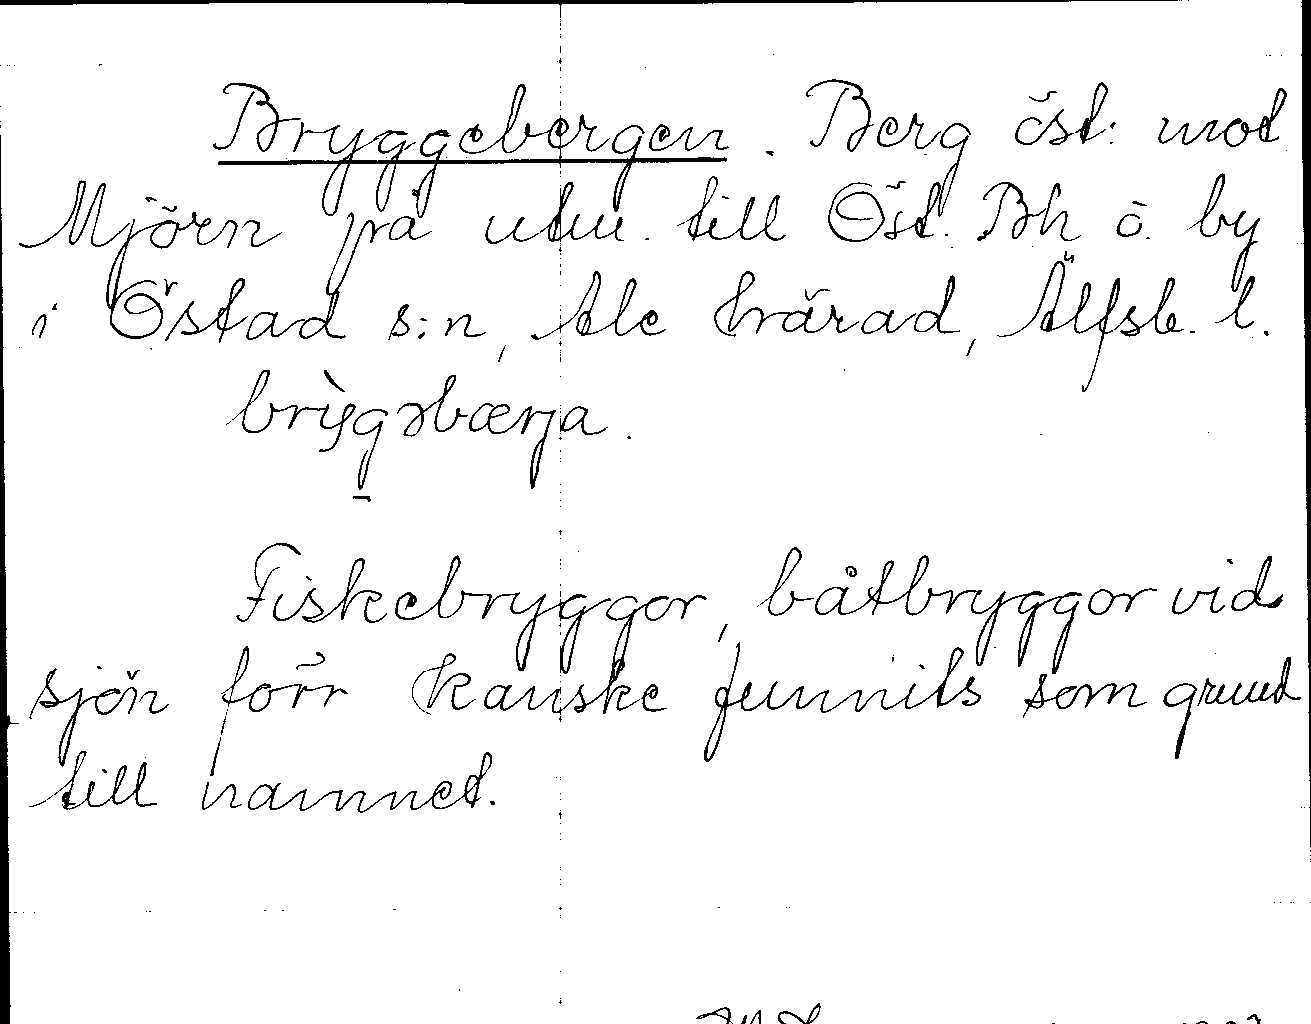 Bryggebergen. Berg öst: mot
Mjörn på utm. till Öst. Bh ö. by
i Östad s:n, Ale härad, Älfsb. l.
brỳgəbærja.
Fiskebryggor, båtbryggor vid
sjön förr kanske funnits som grund
till namnet.